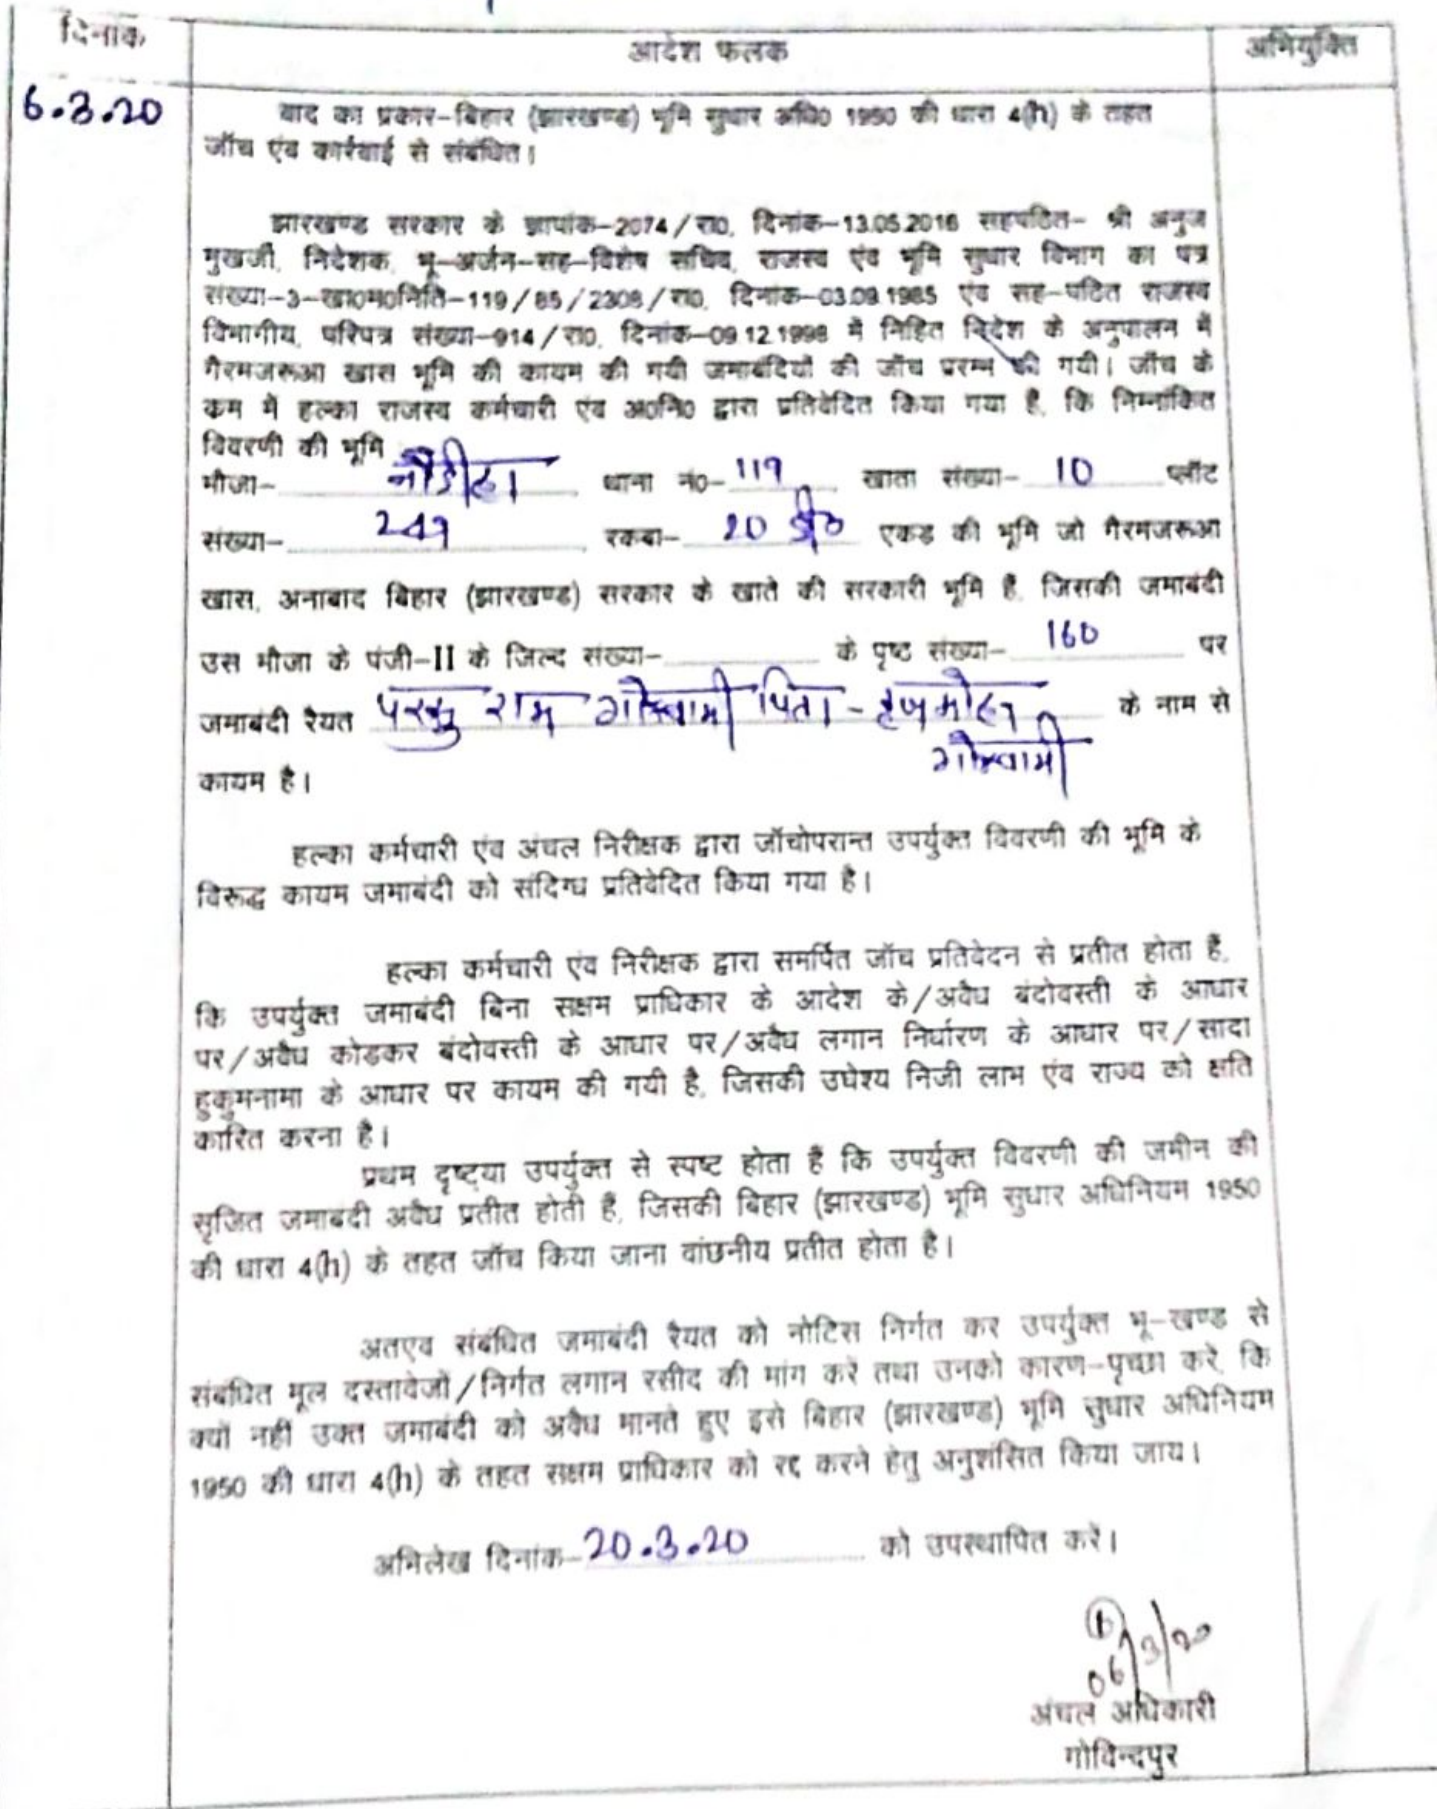 दिनांक
आदेश फलक
अभियुक्ति
6.3.20
वाद का प्रकार-बिहार (झारखण्ड) भूमि सुधार अधि0 1950 की धारा 4(h) के तहत
जॉच एंव कार्रवाई से संबंधित।
झारखण्ड सरकार के ज्ञापांक-2074/रा0, दिनांक-13.05.2016 सहपठित- श्री अनुज
मुखर्जी, निदेशक, भू-अर्जन-सह-विशेष सचिव, राजस्व एंव भूमि सुधार विभाग का पत्र
संख्या-3-खा0म0निति-119/85/2308/रा0, दिनांक-03.09.1985 एंव सह-पठित राजस्व
विभागीय, परिपत्र संख्या-914/रा0, दिनांक-09.12.1998 में निहित निदेश के अनुपालन में
गैरमजरूआ खास भूमि की कायम की गयी जमाबंदियों की जॉच प्ररम्भ की गयी। जॉच के
क्रम में हल्का राजस्व कर्मचारी एंव अ0नि0 द्वारा प्रतिवेदित किया गया है, कि निम्नांकित
विवरणी की भूमि
मौजा- नौडीहा थाना नं0- 119 खाता संख्या- 10 प्लॉट
संख्या- 249 रकबा- 20 डी0 एकड़ की भूमि जो गैरमजरूआ
खास, अनाबाद बिहार (झारखण्ड) सरकार के खाते की सरकारी भूमि है, जिसकी जमाबंदी
उस मौजा के पंजी-II के जिल्द संख्या- के पृष्ट संख्या- 160 पर
जमाबंदी रैयत राम गोस्वामी पिता - बृजमोहन के नाम से
गोस्वामी
कायम है।
हल्का कर्मचारी एंव अंचल निरीक्षक द्वारा जॉचोपरान्त उपर्युक्त विवरणी की भूमि के
विरूद्ध कायम जमाबंदी को संदिग्ध प्रतिवेदित किया गया है।
हल्का कर्मचारी एंव निरीक्षक द्वारा समर्पित जॉच प्रतिवेदन से प्रतीत होता है,
कि उपर्युक्त जमाबंदी बिना सक्षम प्राधिकार के आदेश के/अवैध बंदोवस्ती के आधार
पर/अवैध कोडकर बंदोवस्ती के आधार पर/अवैध लगान निर्धारण के आधार पर/सादा
हुकुमनामा के आधार पर कायम की गयी है, जिसकी उघेश्य निजी लाभ एंव राज्य को क्षति
कारित करना है।
प्रथम दृष्ट्या उपर्युक्त से स्पष्ट होता है कि उपर्युक्त विवरणी की जमीन की
सृजित जमाबंदी अवैध प्रतीत होती है, जिसकी बिहार (झारखण्ड) भूमि सुधार अधिनियम 1950
की धारा 4(h) के तहत जॉच किया जाना वांछनीय प्रतीत होता है।
अतएव संबंधित जमाबंदी रैयत को नोटिस निर्गत कर उपर्युक्त भू-खण्ड से
संबंधित मूल दस्तावेजों/निर्गत लगान रसीद की मांग करें तथा उनको कारण-पृच्छा करें, कि
क्यों नहीं उक्त जमाबंदी को अवैध मानते हुए इसे बिहार (झारखण्ड) भूमि सुधार अधिनियम
1950 की धारा 4(h) के तहत सक्षम प्राधिकार को रद्द करने हेतु अनुशंसित किया जाय।
अभिलेख दिनांक- 20.3.20 को उपस्थापित करें।
06/3/20
अंचल अधिकारी
गोविन्दपुर